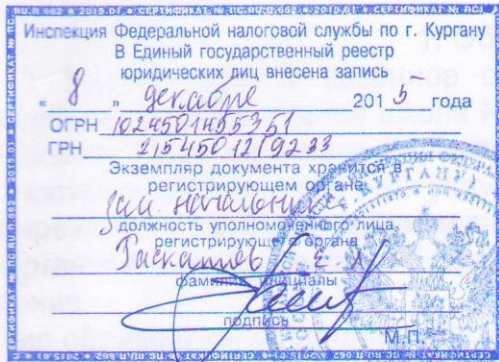 Инспекция Федеральной налоговой службы по г. Кургану
В Единый государственный реестр
юридических лиц внесена запись
" 8 " декабря 2015 года
ОГРН 1024501455351
ГРН
Экземпляр документа хранится в
регистрирующем органе
зам. начальника
должность уполномоченного лица
регистрирующего органа
фамилия, инициалы
подпись
М.П.